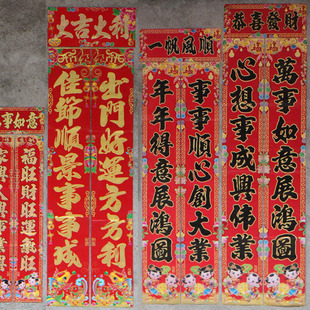 事如意
福旺財旺運氣旺
家興人興事業興
大吉大利
出門好運方方利
佳節順景事事成
一帆風順
事事順心創大業
年年得意展鴻圖
恭喜發財
萬事如意展鴻圖
心想事成興偉業